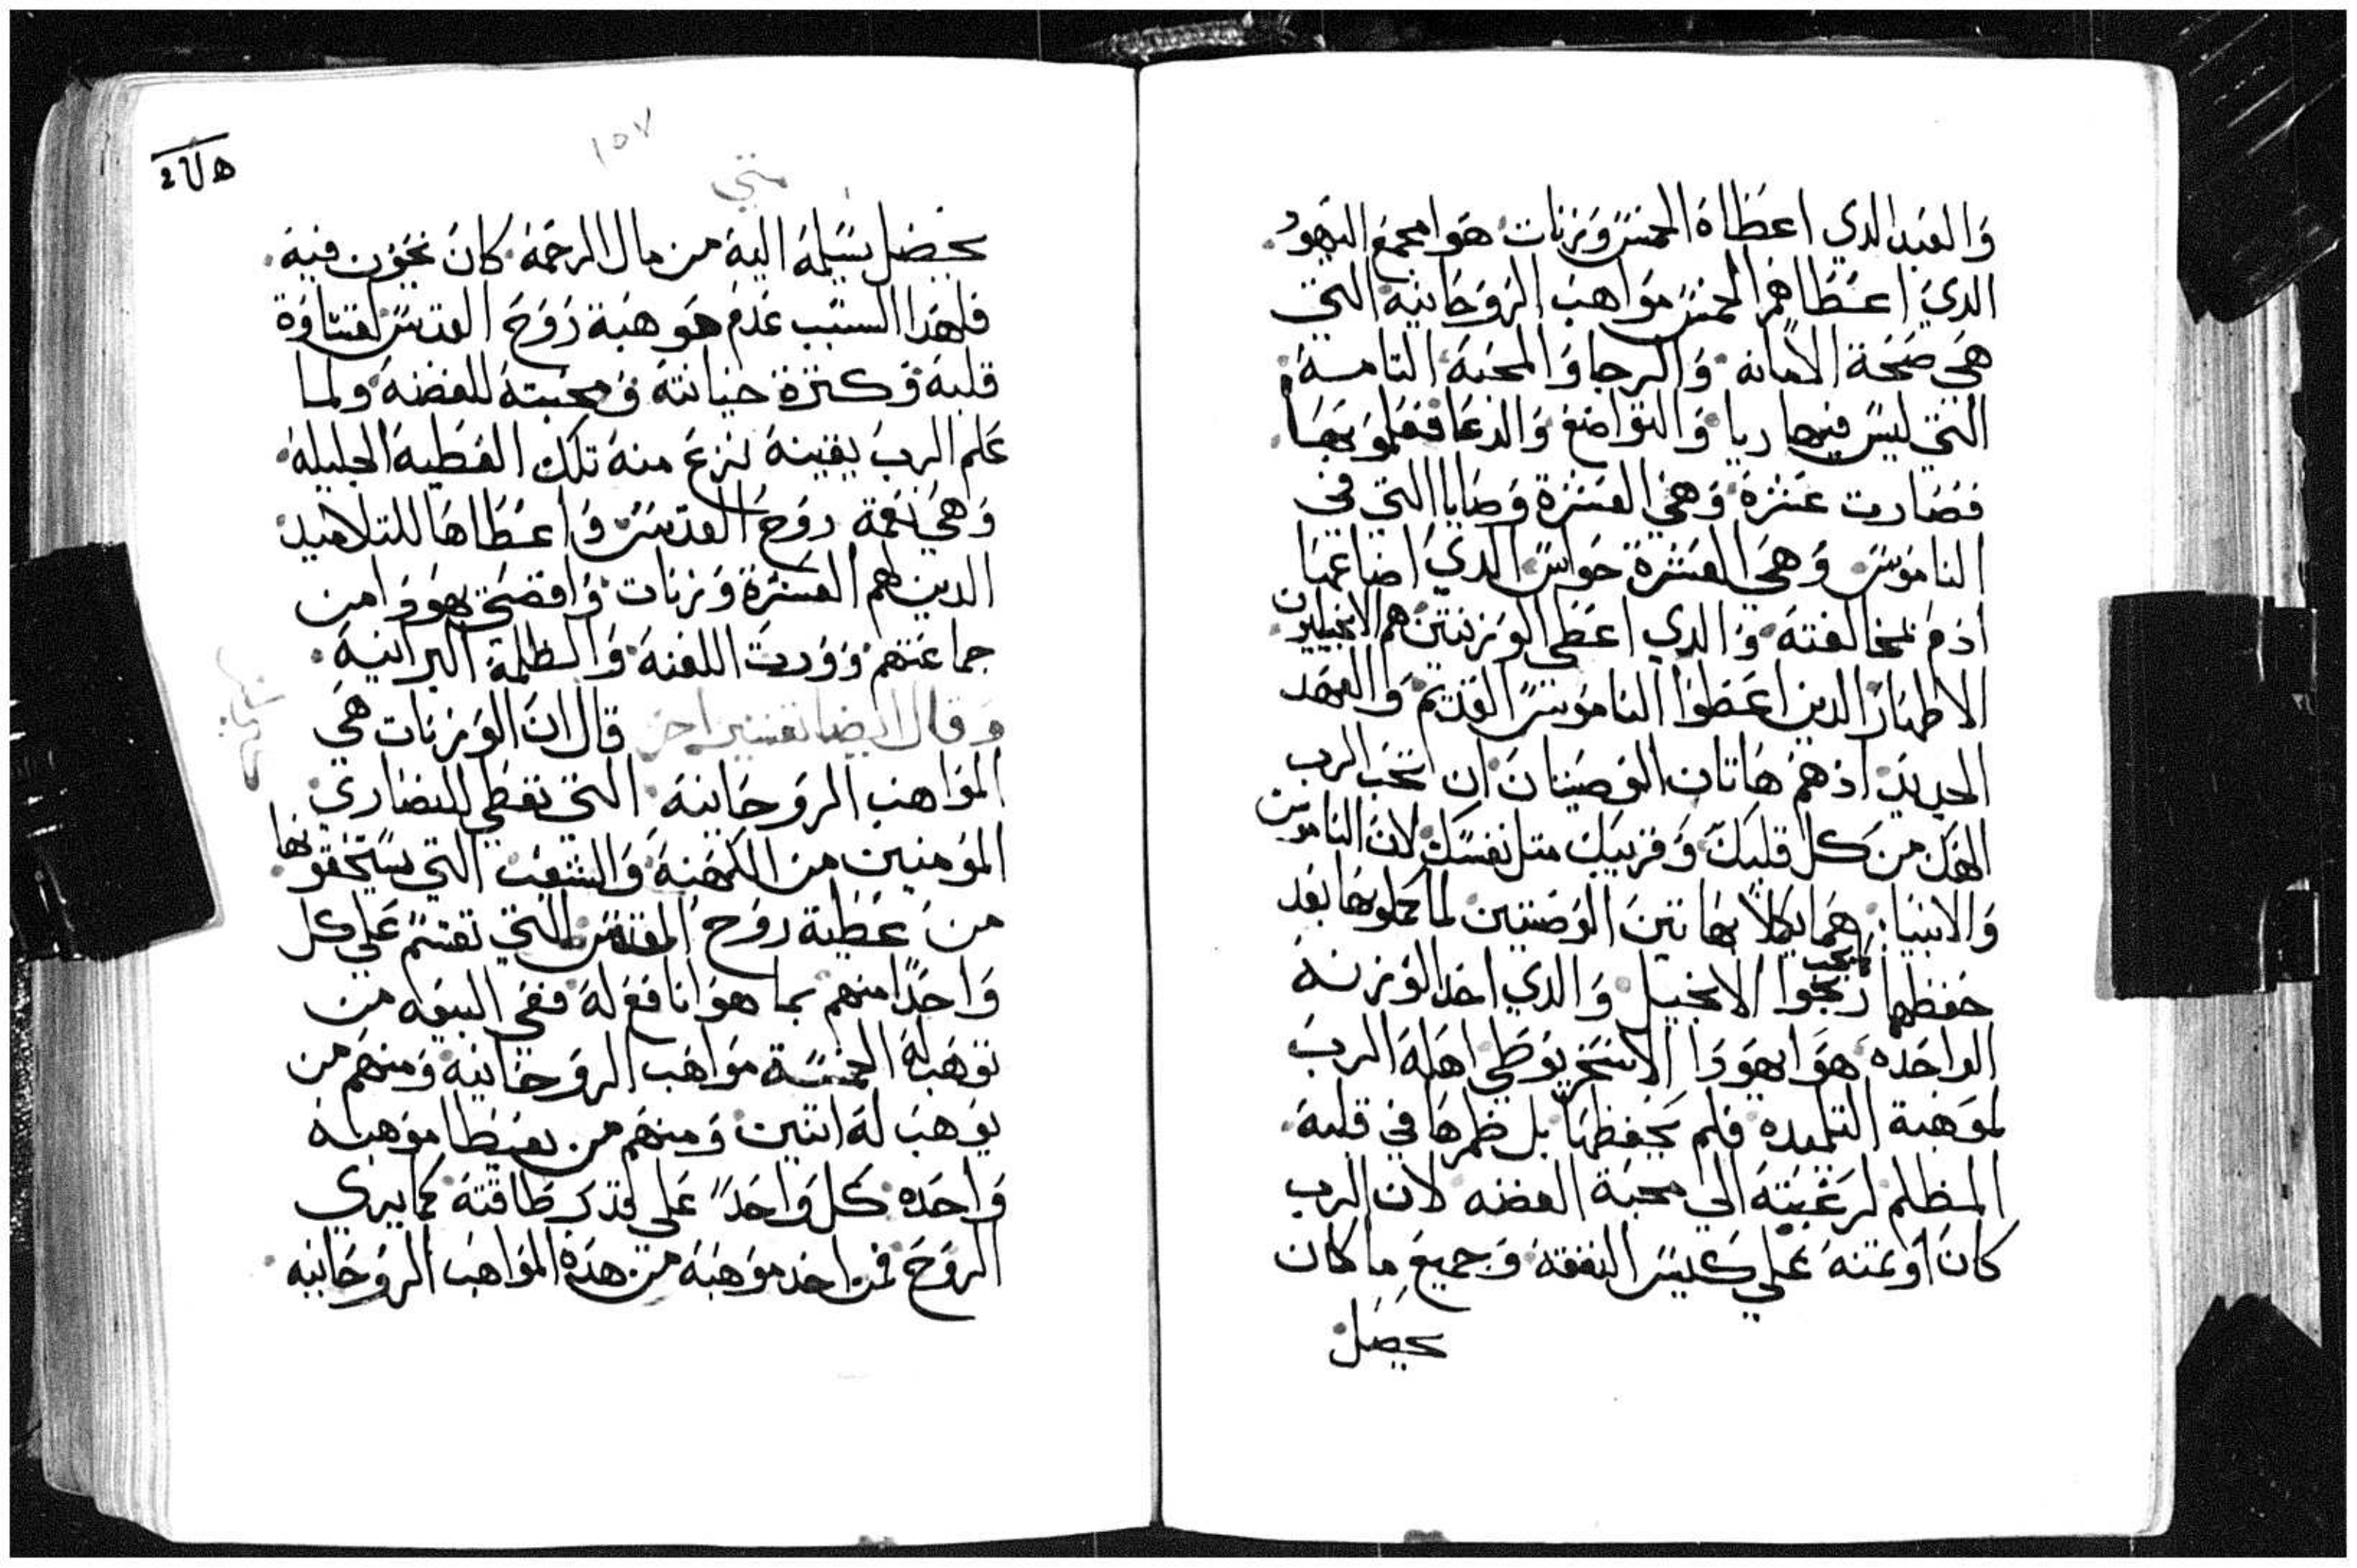 وَالعَبد الدي اعطَاهُ الخمسَ وَزنات هَوا مجمَع اليَهودُ.
الديَ اعَطَاهمَ الخمسَ موَاهبَ الرَوَحَانيه التي
هَي صَحَة الامانه وَالرجا وَالمحَبَه التامسه
التي ليسَ فيها ريا وَالتوَاضع وَالدعَا فعَملوَ بهَا.
فصَارت عشرَة وَهيَ العشَرة وَصَايا التي في
الناموَسَ وَهيَ العشَرة حَوَاسَ الديَ اضاعَها
ادمَ بمخالفتهَ وَالدي اعَطي الوَزنتينَ هم الانجيليون
الاطهارَ الدين اعَطوَا الناموَسَ القديمَ وَالعهَد
الجديدَ ادهمَ هَاتان الوَصيَتانَ ان تحَب الرب
الهَك منَ كل قلبكَ وَقريبكَ متل نفسَك لان الناموس
وَالانبيا هَما يكملا بهَاتينَ الوَصَيتين لما كملوَها بَعد
حَفظها ربحوا الانجيل وَالدي اخد الوَزنه
الواحَده هَوَا يهوَدَا الاسَخريوَطي اهَلهَ الربَ
لموَهبة التلميده فلم يَحفظهَا بل طمرهَا في قلبهَ
المظلم لرغَبتهَ الي محبَة الفضه لان الرب
كانَ اوَتمنهَ عَلي كيسَ النفقهَ وَجميعَ ما كان
يحصَل
١٥٧
متي
يحصَل يسَلمهَ اليهَ من مال الرحَمهَ كانَ يخَوَن فيهَ.
فلهَدا السبَب عَدمَ هَوَ هبَة رَوَحَ القدسَ لقسَاوَة
قلبهَ وَكترَة خيانتهَ وَمحَبتهَ للفضهَ وَلما
عَلم الربَ بيقينهَ نزعَ منهَ تلك العَطيهَ الجليلهَ
وَهَيَ نعَمة روَحَ القدسَ وَاعَطَاهَا للتلاميد
الدين لهم العشَرة وَزنات وَاقصَي يهوَدَا من
جماعَتهم وَوَرتَ اللعنهَ وَالظلمة البرانيهَ.
وَقال ايضا تفسير اخر قال انَ الوَزنات هَي
الموَاهبَ الروَحَانيهَ التي تعَطي للنصَاريَ
الموَمنين منَ الكهَنهَ وَالشعَبَ التي يسَتحَقوَنها
منَ عَطية روَحَ القدسَ التي تقسَم عَلي كل
وَاحَدًا منهم بما هوَ نافعَ لهَ ففي البيعَه من
توَهَب لهَ الخمسَة موَاهَبَ الروَحَانيه وَمنهَم من
يوَهَب لهَ اتنين وَمنهَم من يعَطا موَهبه
وَاحَده كل وَاحَدً عَلي قدرَ طَاقتهَ كما يري
الروَحَ فمن اخد موَهبَهَ من هَدهَ الموَاهبَ الروَحَانيه.